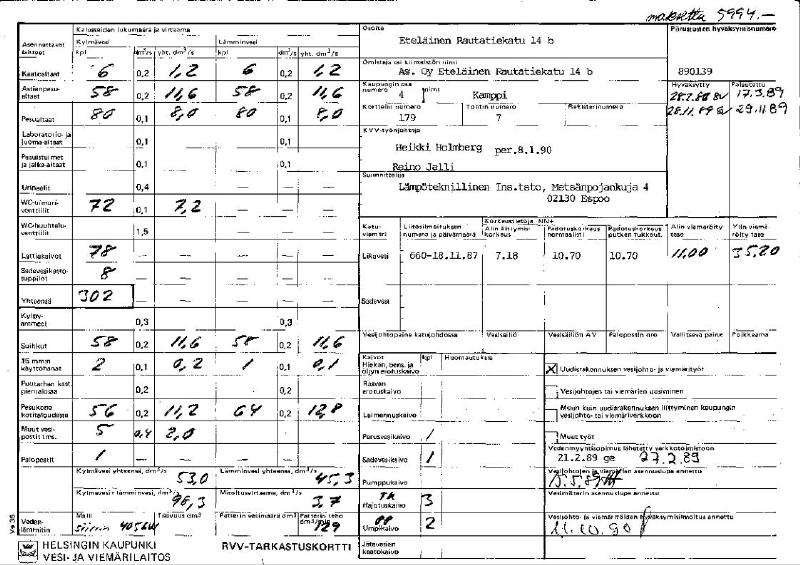 maksettu 5994.-
Asennettavat laitteet
Kalusteiden lukumäärä ja virtaama
Kylmävesi
Lämminvesi
kpl dm³/s yht. dm³/s kpl dm³/s yht. dm³/s
Kaatoaltaat 6 0,2 1,2 6 0,2 1,2
Astianpesualtaat 58 0,2 11,6 58 0,2 11,6
Pesualtaat 80 0,1 8,0 80 0,1 8,0
Laboratorio- ja juoma-altaat 0,1 0,1
Pesuistuimet ja jalka-altaat 0,1 — — 0,1 —
Urinaalit 0,4 — — —
WC-istuinventtiilit 72 0,1 7,2 — — —
WC-huuhteluventtiilit 1,5 — — —
Lattiakaivot 78 — — — — —
Sadevesikattosuppilot 8 — — — — —
Yhteensä 302 — — — — —
Kylpyammeet 0,3 0,3
Suihkut 58 0,2 11,6 58 0,2 11,6
15 mm:n käyttöhanat 2 0,1 0,2 1 0,1 0,1
Puutarhan kast. 0,2 0,2
Pesukone kotitaloudessa 56 0,2 11,2 64 0,2 12,8
Muut vesipostit tms. 5 0,4 2,0
Palopostit 1 — — — — —
Kylmävesi yhteensä, dm³/s 53,0
Lämminvesi yhteensä, dm³/s 45,3
Kylmävesi+lämminvesi, dm³/s 98,3
Mitoitusvirtaama, dm³/s 3,7
Vedenlämmitin
Malli
Tilavuus dm3
Patterin vesimäärä dm3
Patterin teho 129
Ve 35
HELSINGIN KAUPUNKI
VESI- JA VIEMÄRILAITOS
RVV-TARKASTUSKORTTI
Osoite
Eteläinen Rautatiekatu 14 b
Omistaja tai tilmistön nimi
As. Oy Eteläinen Rautatiekatu 14 b
Kaupungin osa numero 4 nimi Kamppi
Korttelin numero 179
Tontin numero 7
Rekisterinumero
KVV-työnjohtaja
Heikki Holmberg per.8.1.90
Reino Jelli
Suunnittelija
Lämpöteknillinen Ins.tsto, Metsänpojankuja 4
02130 Espoo
Piirustusten hyväksymisnumero
890139
Hyväksytty 28.2.89
Palautettu 17.3.89
28.11.89 29.11.89
Katuviemäri
Liitosilmoituksen numero ja päivämäärä
Korkeustietoja NN+
Alin liittymiskorkeus
Padotuskorkeus normaaliini
Padotuskorkeus putken tukkeut.
Alin viemäröity taso
Ylin viemäröity taso
Likavesi 660-18.11.87 7.18 10.70 10.70 11.00 35.20
Sadevesi
Vesijohtopaine katujohdossa
Vesisäiliö
Vesisäiliön A V
Palopostin aro
Vallitseva paine
Poikkeama
Kaivot kpl Huomautuksia
Hiekan, bens. ja öljynerotuskaivo
Rasvan erotuskaivo
Laimennuskaivo
Perusvesikaivo /
Sadevesikaivo 1
Pumppukaivo
TK
Hajotuskaivo 3
Umpikaivo 2
Jätevesien kaatokaivo
X Uudisrakennuksen vesijohto- ja viemärityöt
Vesijohtojen tai viemärien uusiminen
Muun kuin uudisrakennuksen liittyminen kaupungin vesijohto- tai viemäriverkkoon
Muut työt
Vedenmyyntisopimus lähetetty verkkotoimistoon
21.2.89 ge 27.2.89
Vesijohtojen ja viemärien asennuslupa annettu
15.5.89
Vesimittarin asennuslupa annettu
Vesijohto- ja viemäritöiden hyväksymisilmoitus annettu
11.10.90